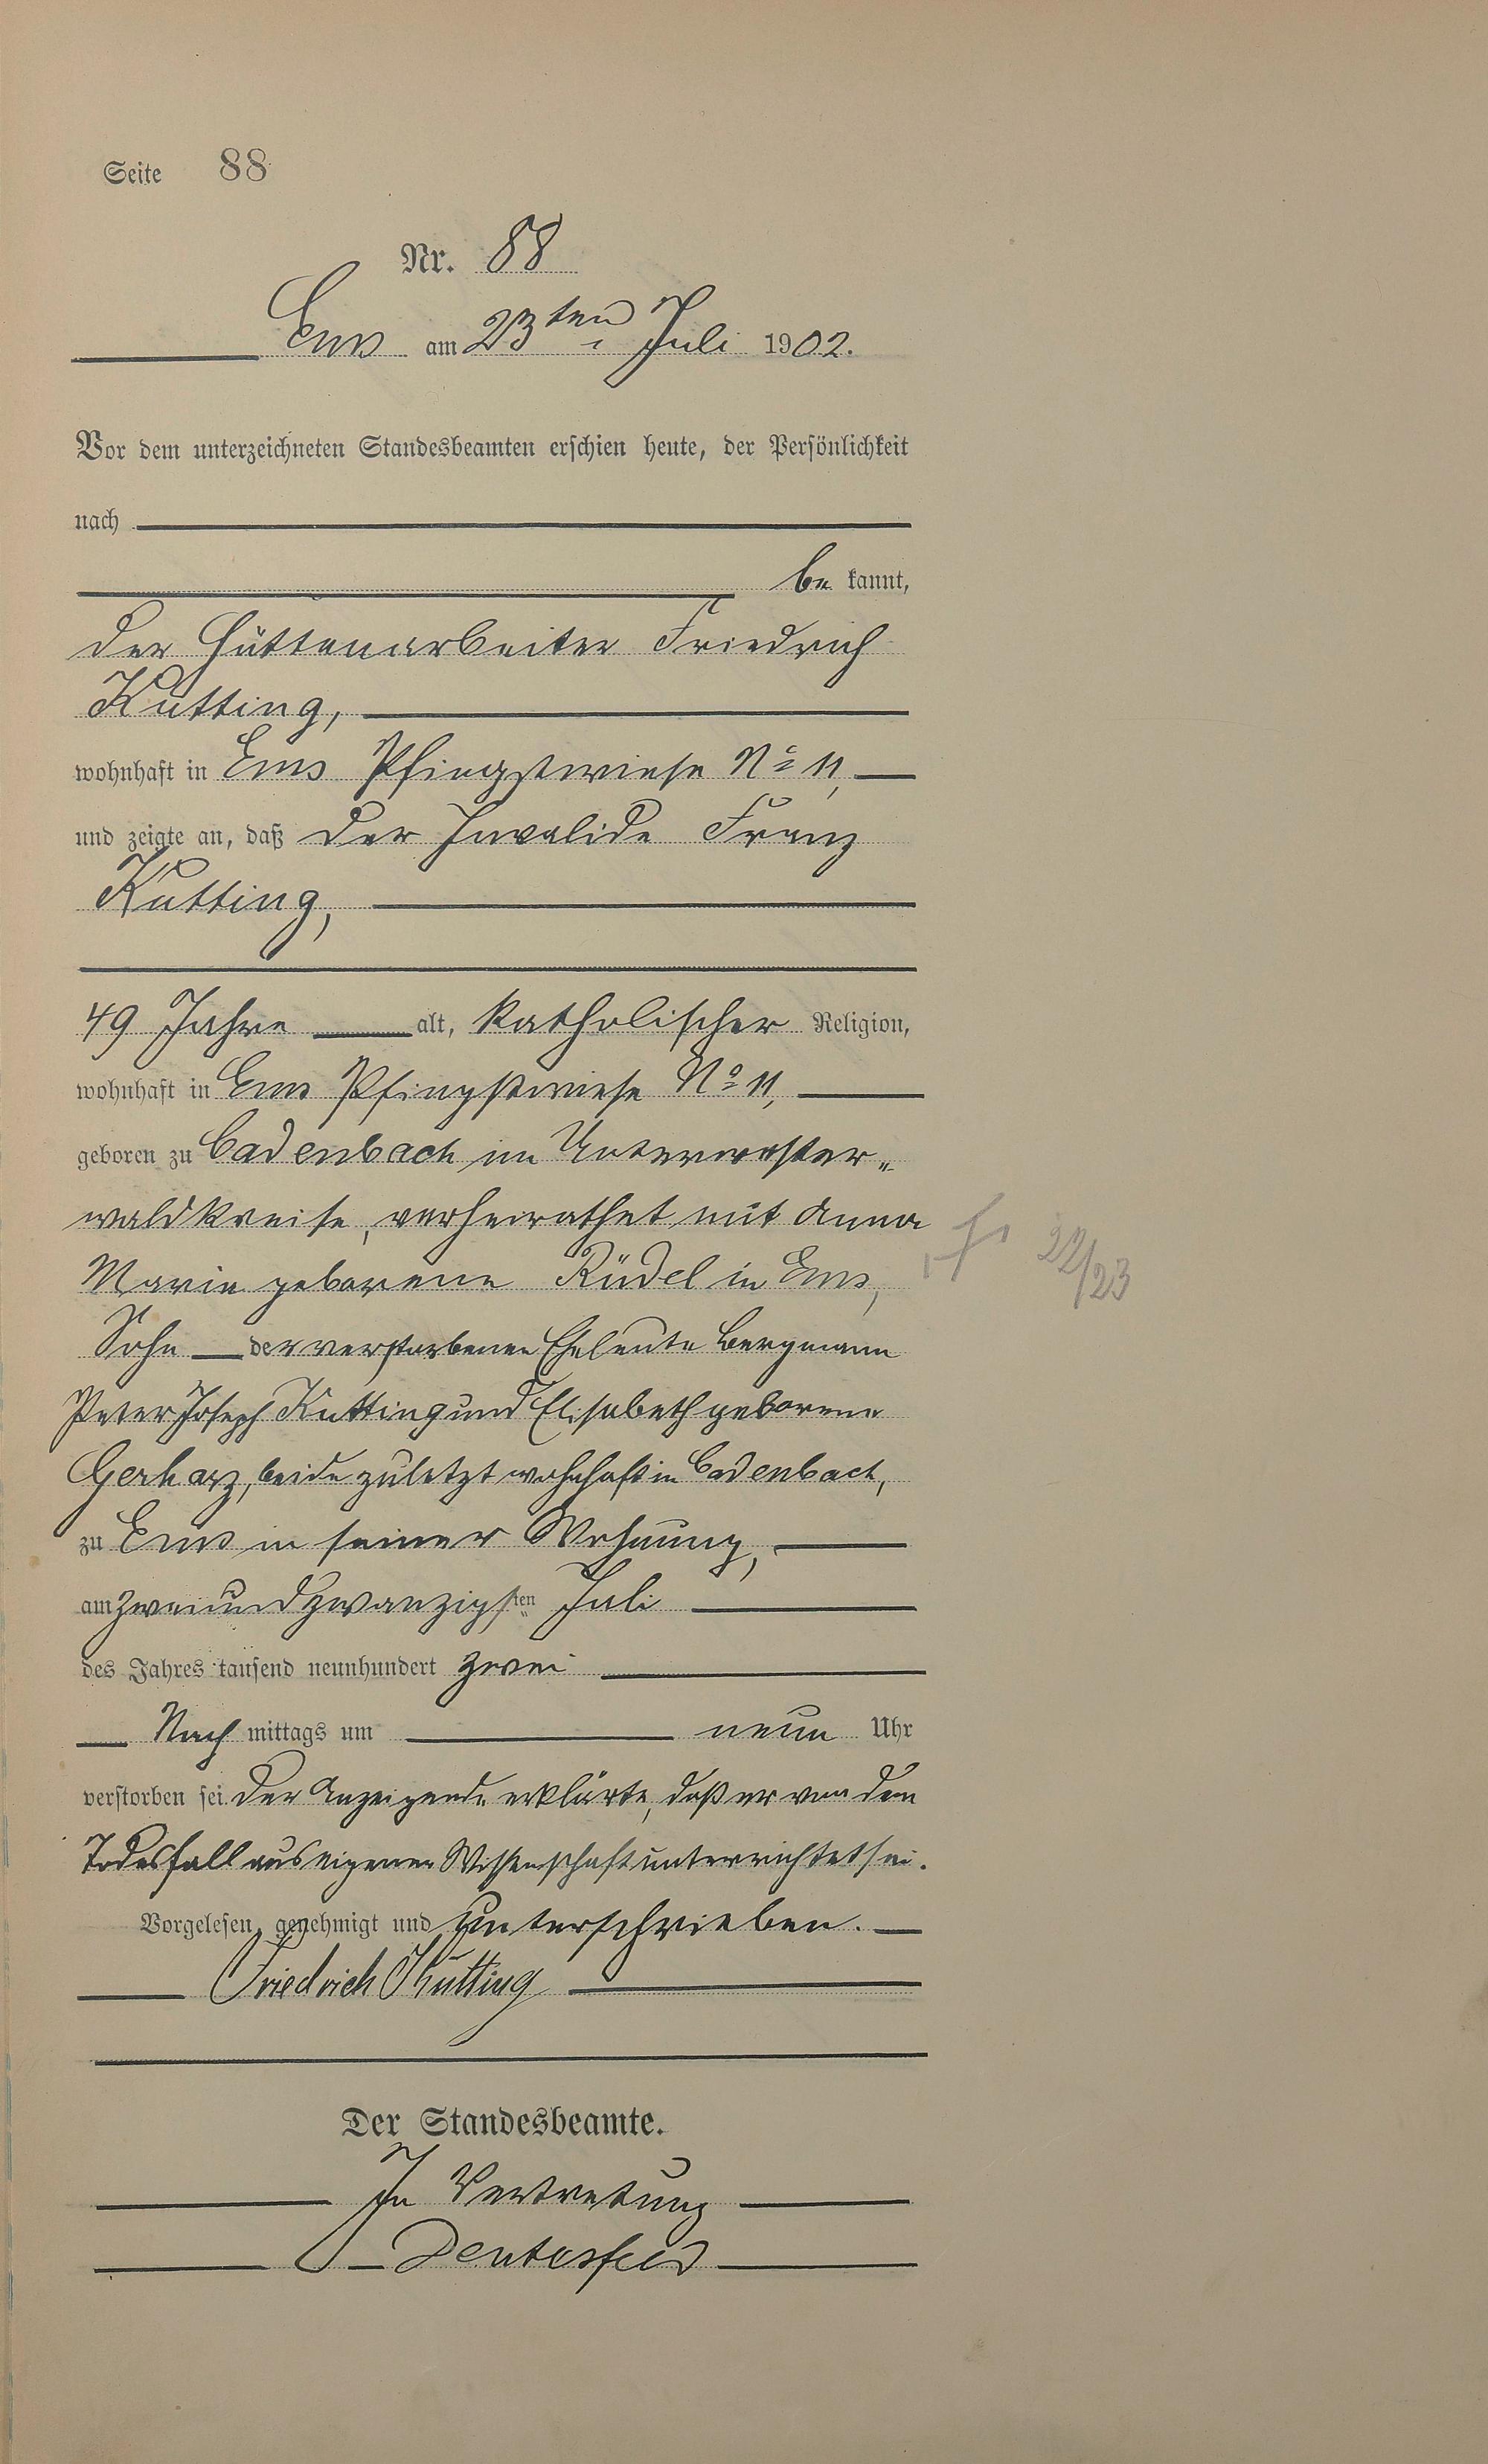 Seite 88
Nr. 88
Ems am 23ten Juli 1902.
Vor dem unterzeichneten Standesbeamten erschien heute, der Persönlichkeit
nach
be kannt,
der Hüttenarbeiter Friedrich
Kutting,
wohnhaft in Ems Pfingstwiese No 11,
und zeigte an, daß der Invalide Franz
Kutting,
49 Jahre alt, katholischer Religion,
wohnhaft in Ems Pfingstwiese No 11,
geboren zu Cadenbach im Unterwester„
waldkreise, verheirathet mit Anna
Maria geborene Rüdel in Ems,
Sohn der verstorbenen Eheleute Bergmann
Peter Joseph Kutting und Elisabeth geborene
Gerharz, beide zuletzt wohnhaft in Cadenbach,
zu Ems in seiner Wohnung,
am zweiundzwanzigsten Juli
des Jahres tausend neunhundert zwei
Nach mittags um neun Uhr
verstorben sei. Der Anzeigende erklärte, daß er von dem
Todesfall aus eigener Wissenschaft unterrichtet sei.
Vorgelesen, genehmigt und unterschrieben.
Friedrich Kutting
Der Standesbeamte.
In Vertretung
22/23